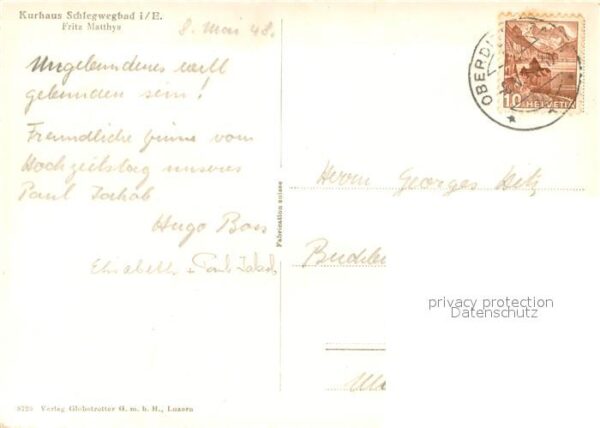 Kurhaus Schlegwegbad i/E.
Fritz Matthys
8. Mai 48.
Ungebundenes will
gebunden sein!
Freundliche Grüsse vom
Hochzeitstag unseres
Paul Jakob
Hugo Boss
Elisabeth + Paul Jakob
Fabrication suisse
OBERDI
10 HELVETIA
Herrn Georges
privacy protection
Datenschutz
8729 Verlag Globetrotter G. m. b. H., Luzern